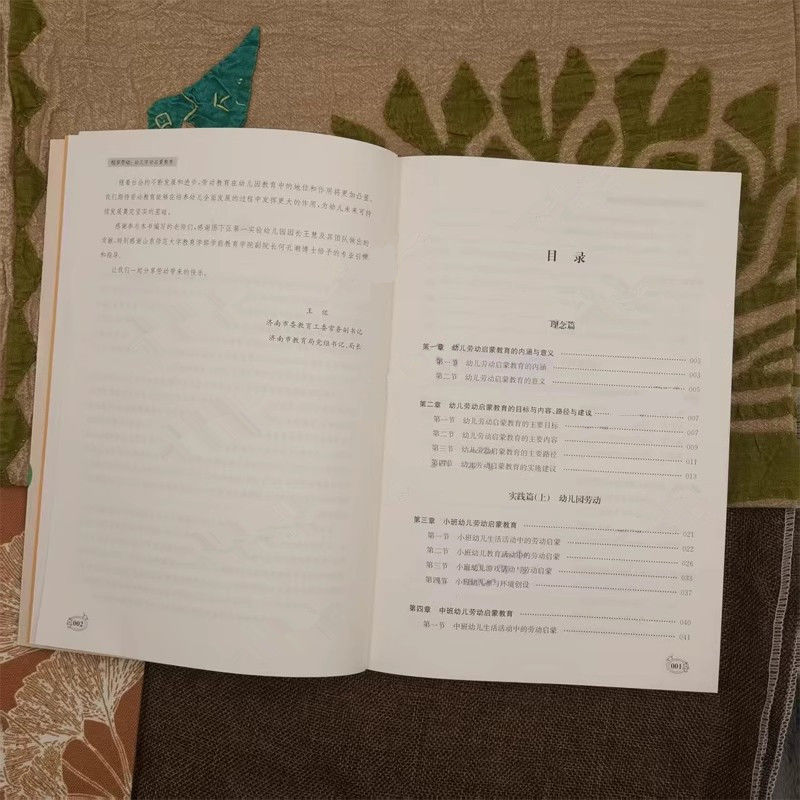 幼儿劳动启蒙教育
随着社会的不断发展和进步,劳动教育在幼儿园教育中的地位和作用将更加凸显。
我们期待劳动教育能够在培养幼儿全面发展的过程中发挥更大的作用,为幼儿未来可持
续发展奠定坚实的基础。
感谢参与本书编写的老师们,感谢历下区第一实验幼儿园园长王慧及其团队做出的
贡献,特别感谢山东师范大学教育学部学前教育学院副院长何孔潮博士给予的专业引领
和指导。
让我们一起分享劳动带来的快乐。
王
济南市委教育工委常务副书记
济南市教育局党组书记、局长
002
目 录
理念篇
第一章 幼儿劳动启蒙教育的内涵与意义 003
第一节 幼儿劳动启蒙教育的内涵 003
第二节 幼儿劳动启蒙教育的意义 005
第二章 幼儿劳动启蒙教育的目标与内容、路径与建议 007
第一节 幼儿劳动启蒙教育的主要目标 007
第二节 幼儿劳动启蒙教育的主要内容 009
第三节 幼儿劳动启蒙教育的主要路径 011
第四节 幼儿劳动启蒙教育的实施建议 013
实践篇(上) 幼儿园劳动
第三章 小班幼儿劳动启蒙教育 021
第一节 小班幼儿生活活动中的劳动启蒙 022
第二节 小班幼儿教育活动中的劳动启蒙 026
第三节 小班幼儿游戏活动 劳动启蒙 033
第四节 小班幼儿 与环境创设 037
第四章 中班幼儿劳动启蒙教育 040
第一节 中班幼儿生活活动中的劳动启蒙 041
001